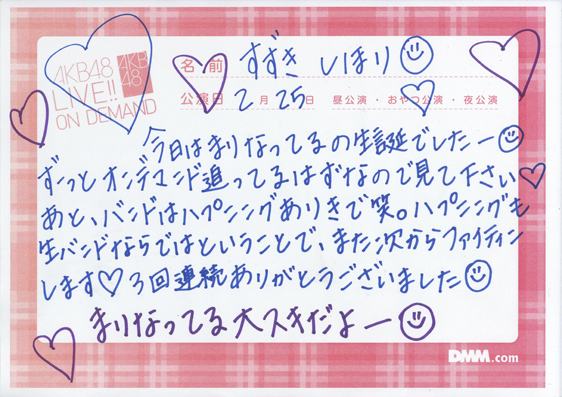 AKB48
LIVE!!
ON DEMAND
AKB
48
名前 すずき しほり
公演日 2月25日 昼公演・おやつ公演・夜公演
今日はまりなってるの生誕でしたー
ずっとオンデマンド追ってるはずなので見て下さい♡
あと、バンドはハプニングありきで笑。ハプニングも
生バンドならではということで、また次からファイティン
します♡3回連続ありがとうございました
まりなってる大スキだよー
DMM.com